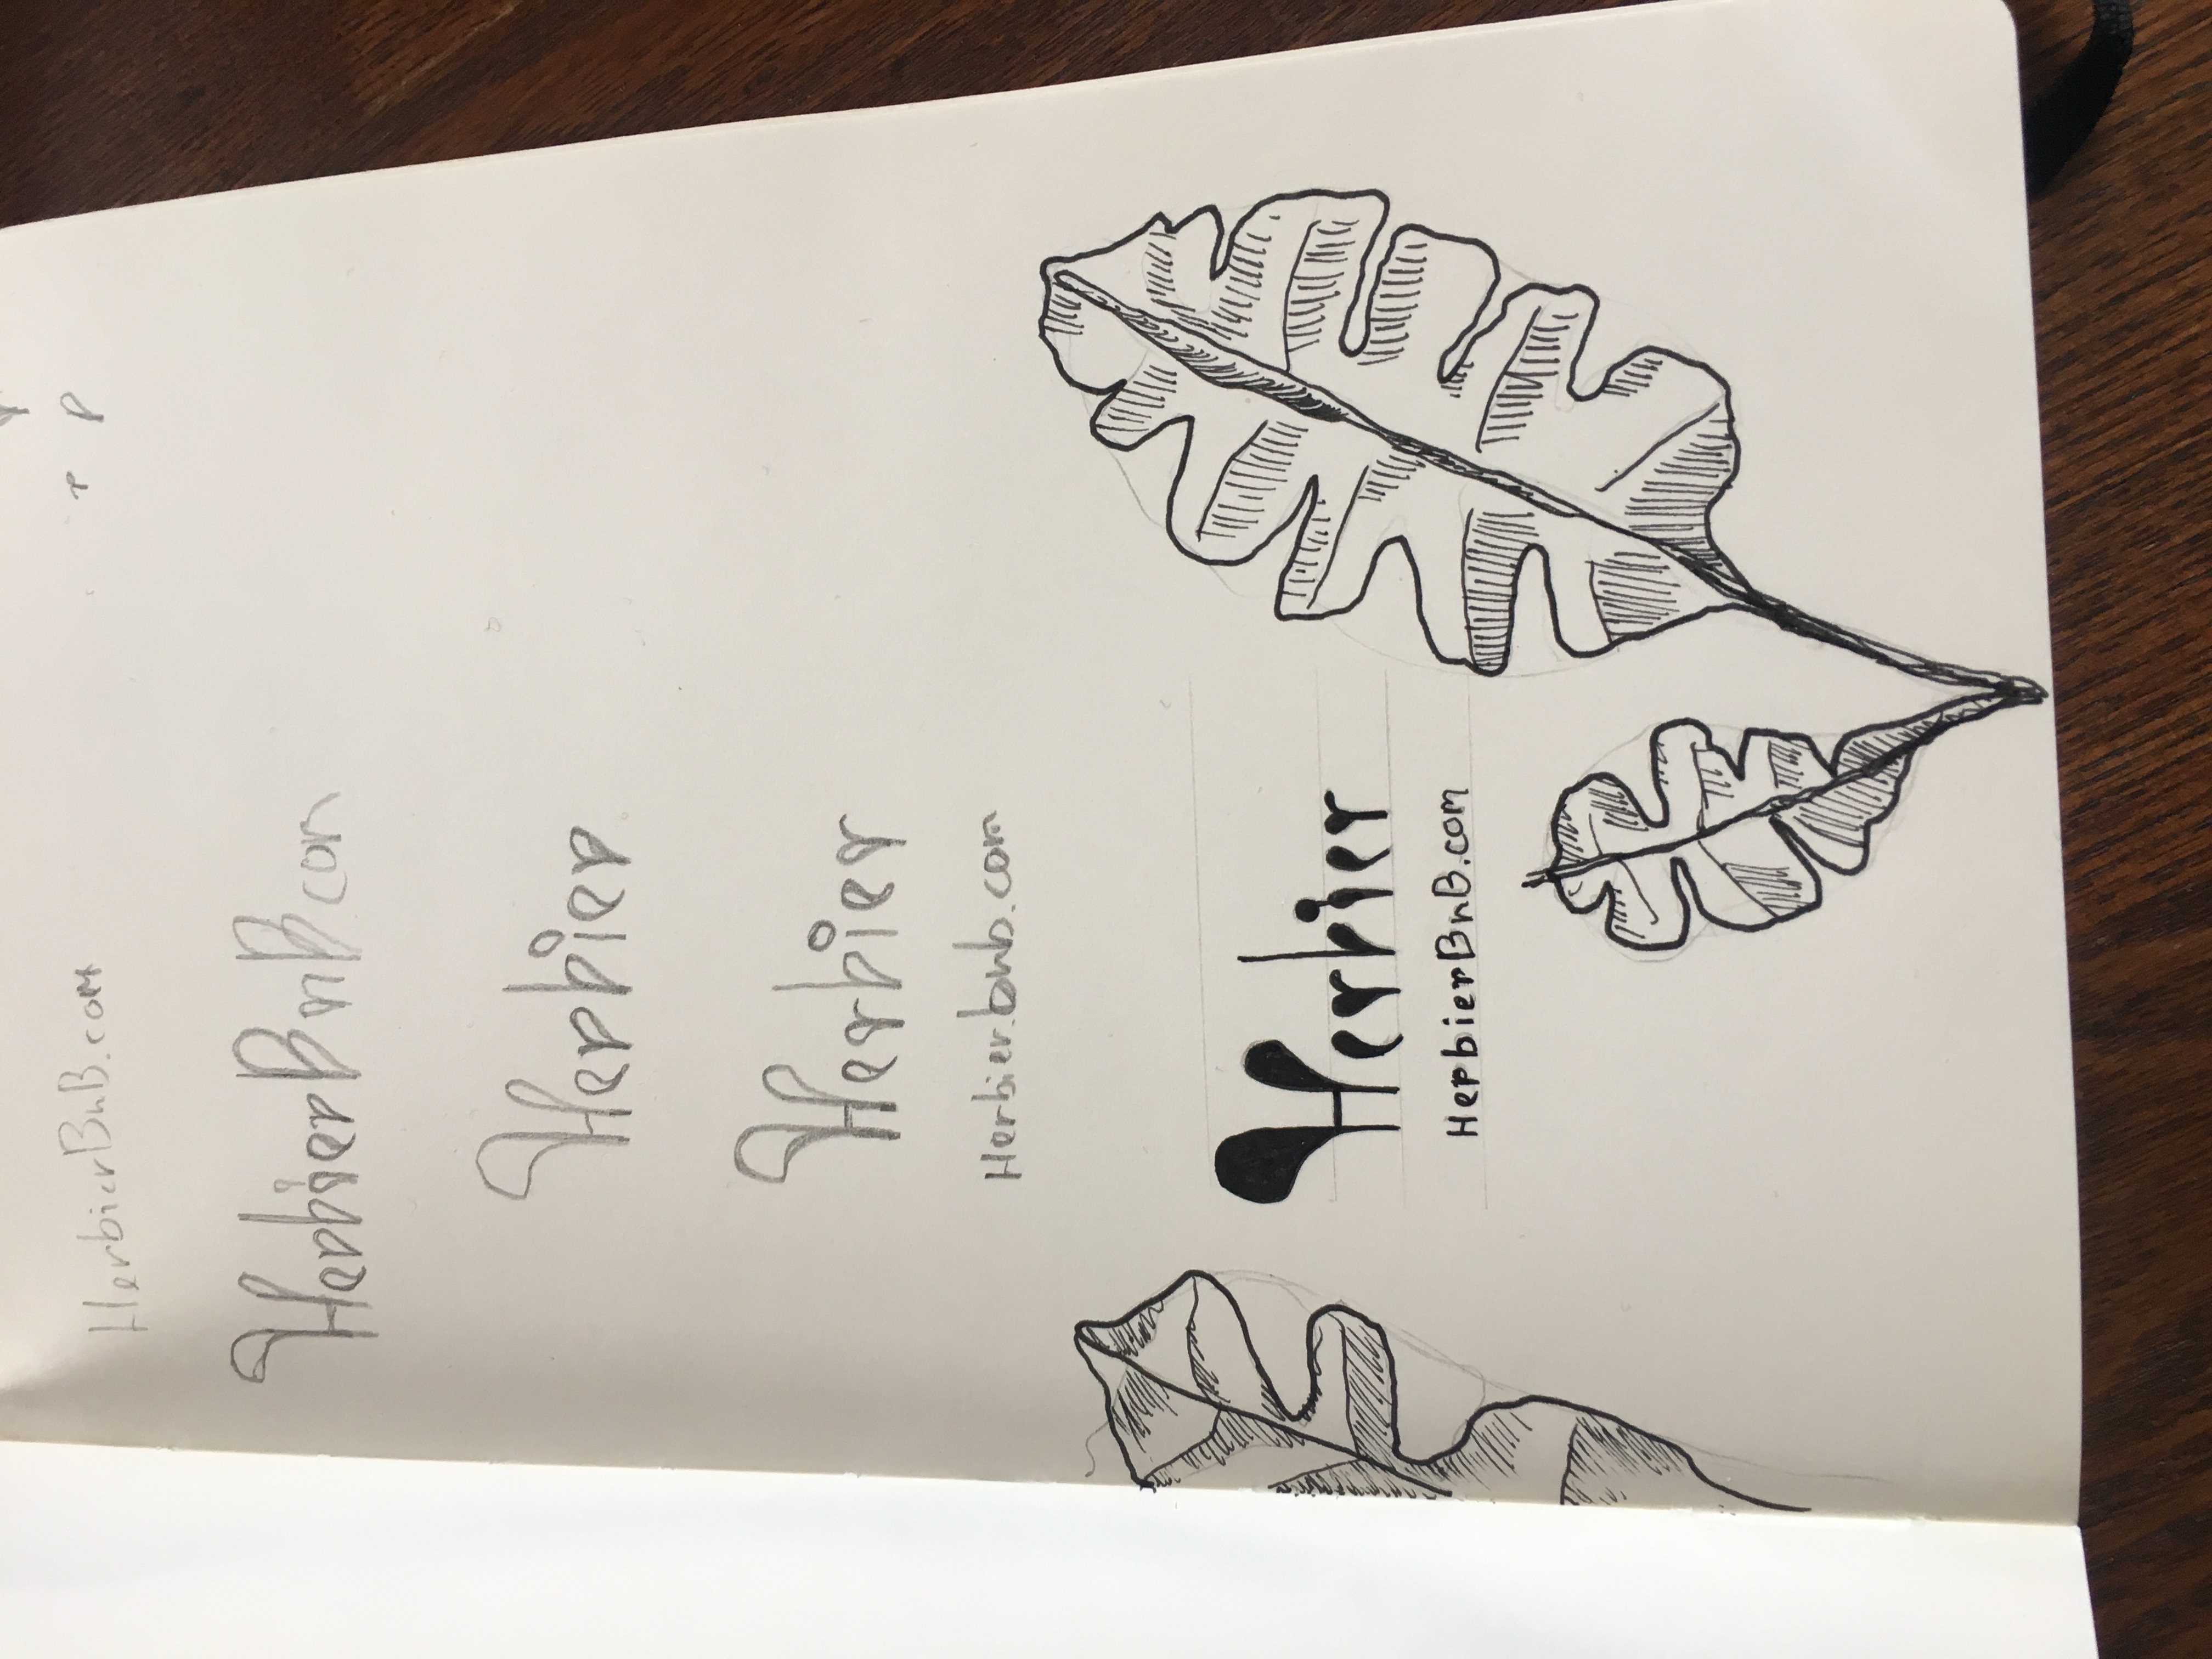 HerbierBnB.com
HerbierBnBcom
Herbier
Herbier
Herbier.bnb.com
Herbier
HerbierBnB.com